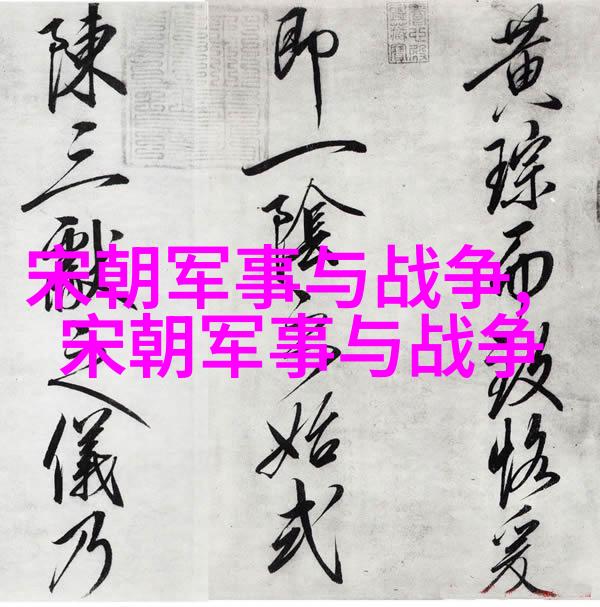 黄琮而致恪爰
即一陰始式
陳三獻之儀乃
宋朝军事与战争,
宋朝军事与战争